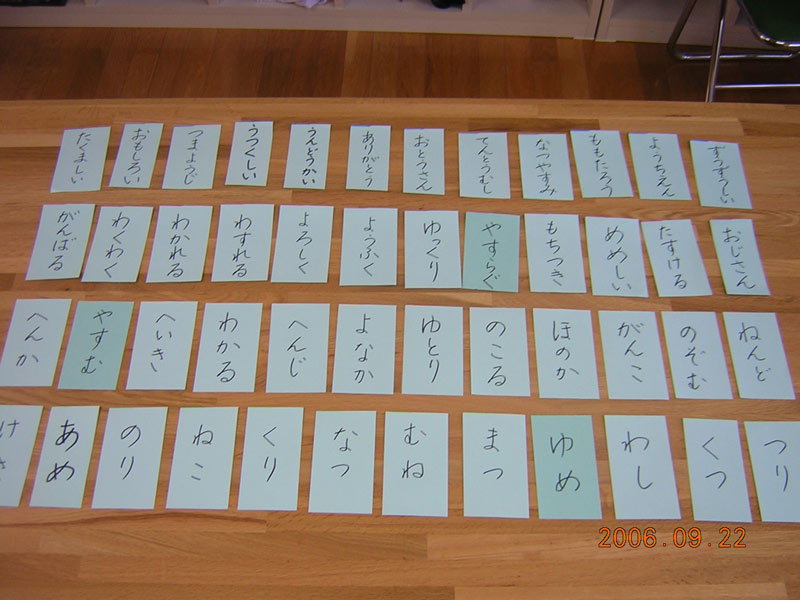 たくましい
おもしろい
つまようじ
うつくしい
うんどうかい
ありがとう
おとうさん
てんとうむし
なつやすみ
ももたろう
ようちえん
ずうずうしい
がんばる
わくわく
わかれる
わすれる
よろしく
ようふく
ゆっくり
やすらぐ
もちつき
めめしい
たすける
おじさん
へんか
やすむ
へいき
わかる
へんじ
よなか
ゆとり
のこる
ほのか
がんこ
のぞむ
ねんど
あめ
のり
ねこ
くり
なつ
むね
まつ
ゆめ
わし
くつ
つり
2006.09.22